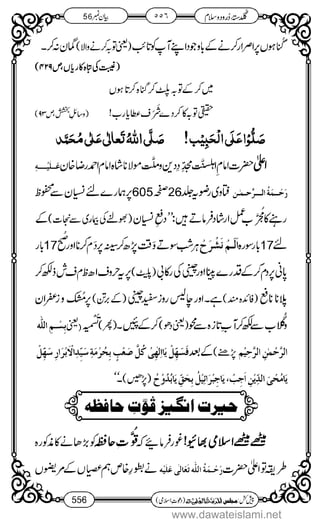 بیان نمبر 56 ۵۵۶ گلدستۂ درود و سلام
گناہوں پر اِصرار کرنے کے باوجود اپنے آپ کو تائب (یعنی توبہ کرنے والا) گمان نہ کر۔
(غیبت کی تباہ کاریاں ص ۴۲۹)
میں کر کے توبہ پلٹ کر گناہ کرتا ہوں
حقیقی توبہ کا کر دے شرف عطا یارب! (وسائل بخشش، ص ۹۳)
صَلُّوْا عَلَى الْحَبِيْبِ! صَلَّى اللّٰهُ تَعَالٰى عَلٰى مُحَمَّد
اعلیٰ حضرت امامِ اہلسنّت مجدِّدِ دین و ملّت مولانا شاہ امام احمد رضا خان عَلَيْهِ
رَحْمَةُ الرَّحْمٰن فتاویٰ رضویہ جلد 26 صفحہ 605 پر ہمارے لئے نسیان سے محفوظ
رہنے کا مُجرَّب عمل ارشاد فرماتے ہیں: ”دفعِ نسیان (یعنی بھولنے کی بیماری سے نجات) کے
لئے 17 بار سورۂ اَلَمْ نَشْرَحْ ہر شب سوتے وقت پڑھ کر سینہ پر دم کرنا اور صبح 17 بار
پانی پر دم کر کے قدرے پینا اور چینی کی رکابی (پلیٹ) پر یہ حروف ا ہ ط م ف ش ذ لکھ کر
پلانا نافع (فائدہ مند) ہے۔ اور چالیس روز سفید چینی (کے برتن) پر مشک و زعفران و
گلاب سے لکھ کر آبِ تازہ سے محو کر کے (یعنی دھو کر) پئیں۔ (پہلے) تسمیہ (یعنی بِسْمِ اللّٰهِ
الرَّحْمٰنِ الرَّحِيْم) پڑھیں کے بعد فَسَهِّلْ يَا اِلٰهِىْ كُلَّ صَعْبٍ بِحُرْمَةِ سَيِّدِ الْاَبْرَارِ سَهِّلْ
يَا مُحْيِىَ الدِّيْنِ اَجِبْ، يَاجِبْرَائِيْلُ بِحَقِّ يَا بُدُّوْحُ (پڑھیں)۔“
حیرت انگیز قوتِ حافظہ
میٹھے میٹھے اسلامی بھائیو! غور فرمائیے کہ قوتِ حافظہ کو بڑھانے کا مذکورہ
طریقہ تو اعلیٰ حضرت رَحْمَةُ اللّٰهِ تَعَالٰى عَلَيْه نے بطورِ خاص ہم عصیاں کے مریضوں
556
www.dawateislami.net